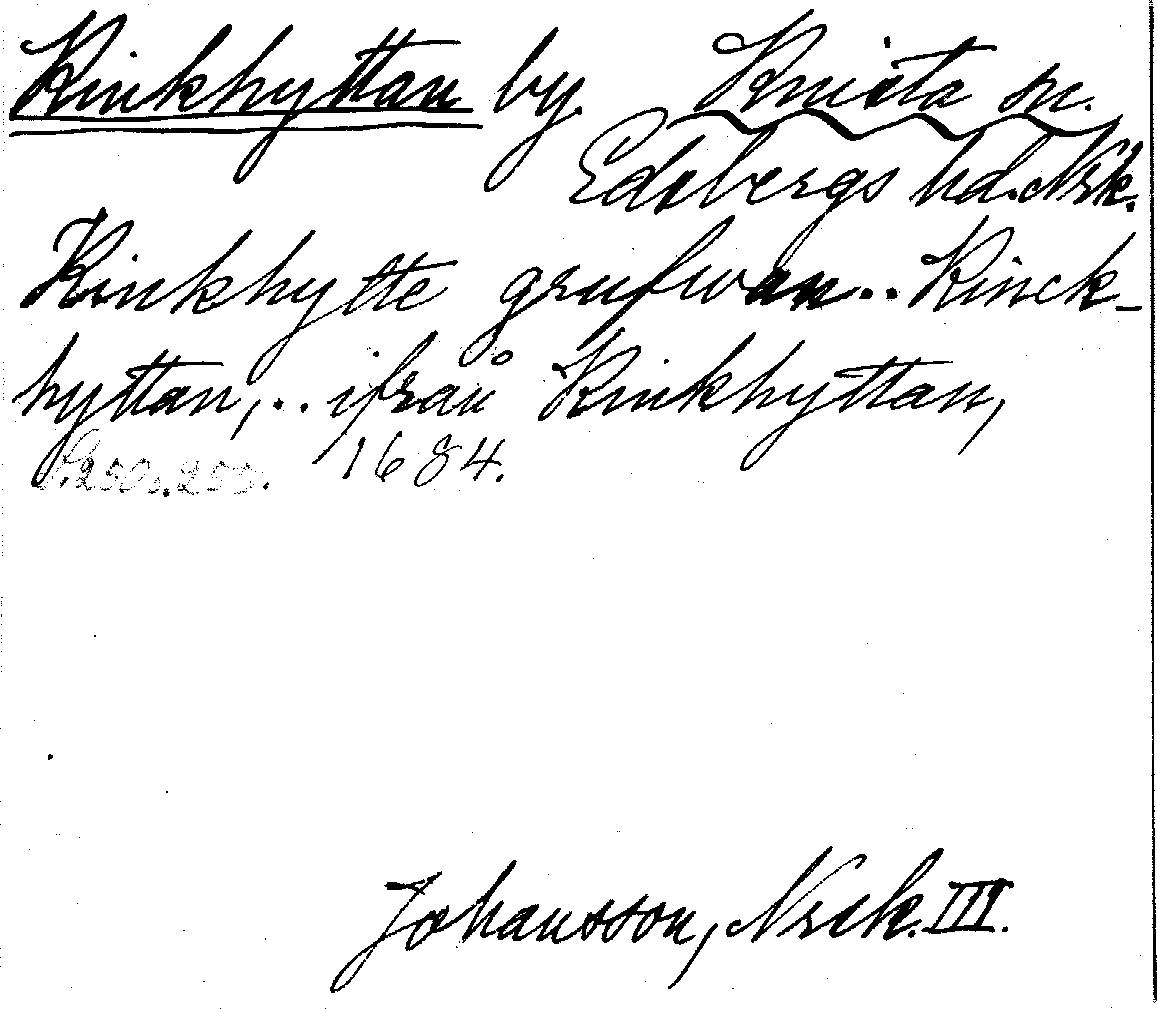 Kinkhyttan by. Knista sn.
Edsbergs hd. Nrk.
Kinkhytte grufwan.. Kinck-
hyttan,.. ifrån Kinkhyttan,
S. 250 o. 255. 1684.
Johansson, Nrck. III.